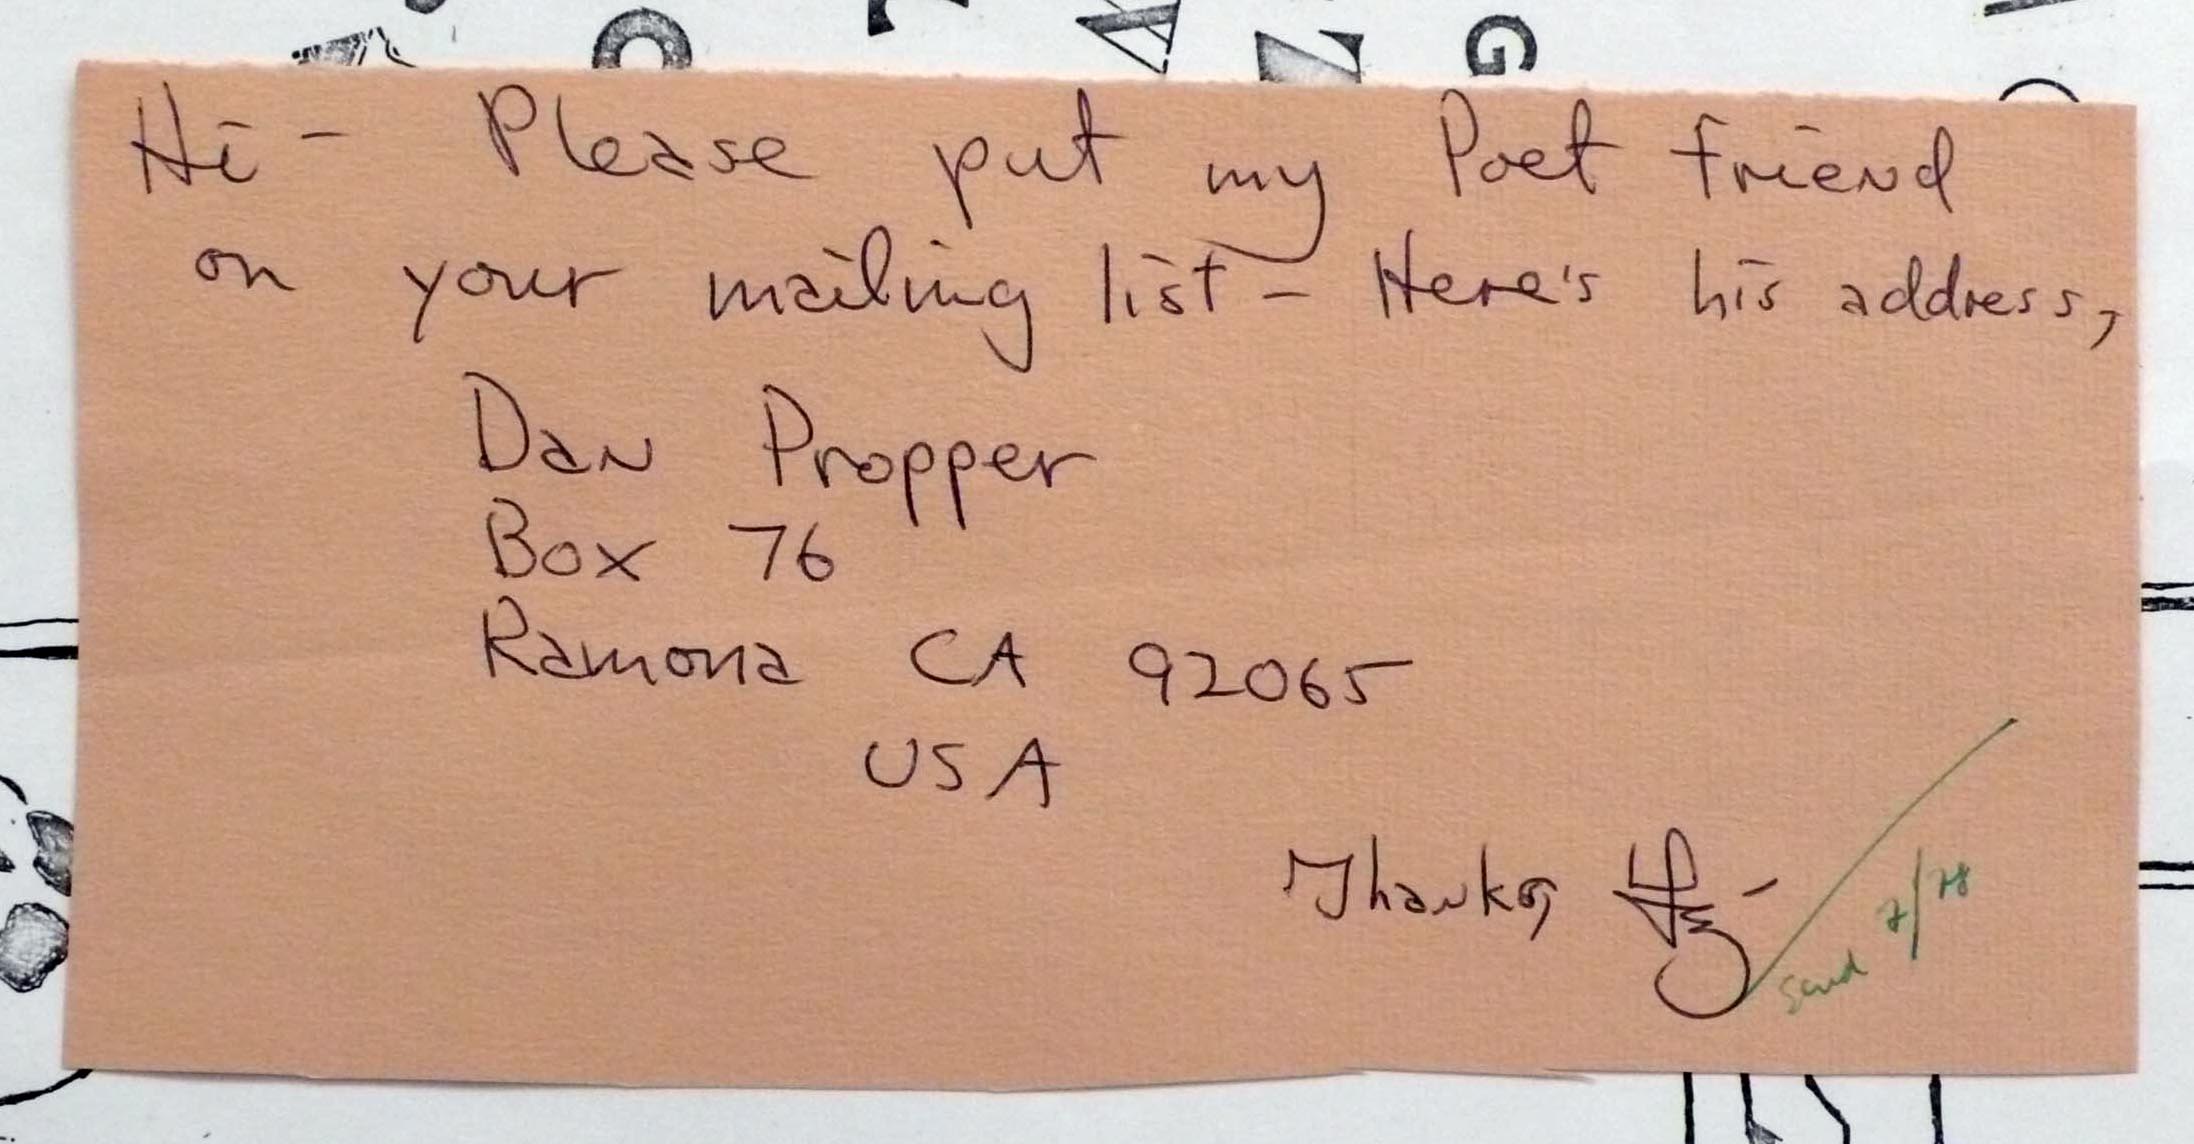 Hi - Please put my Poet friend
on your mailing list - Here's his address,
Dan Propper
Box 76
Ramona CA 92065
USA
Thanks,
send